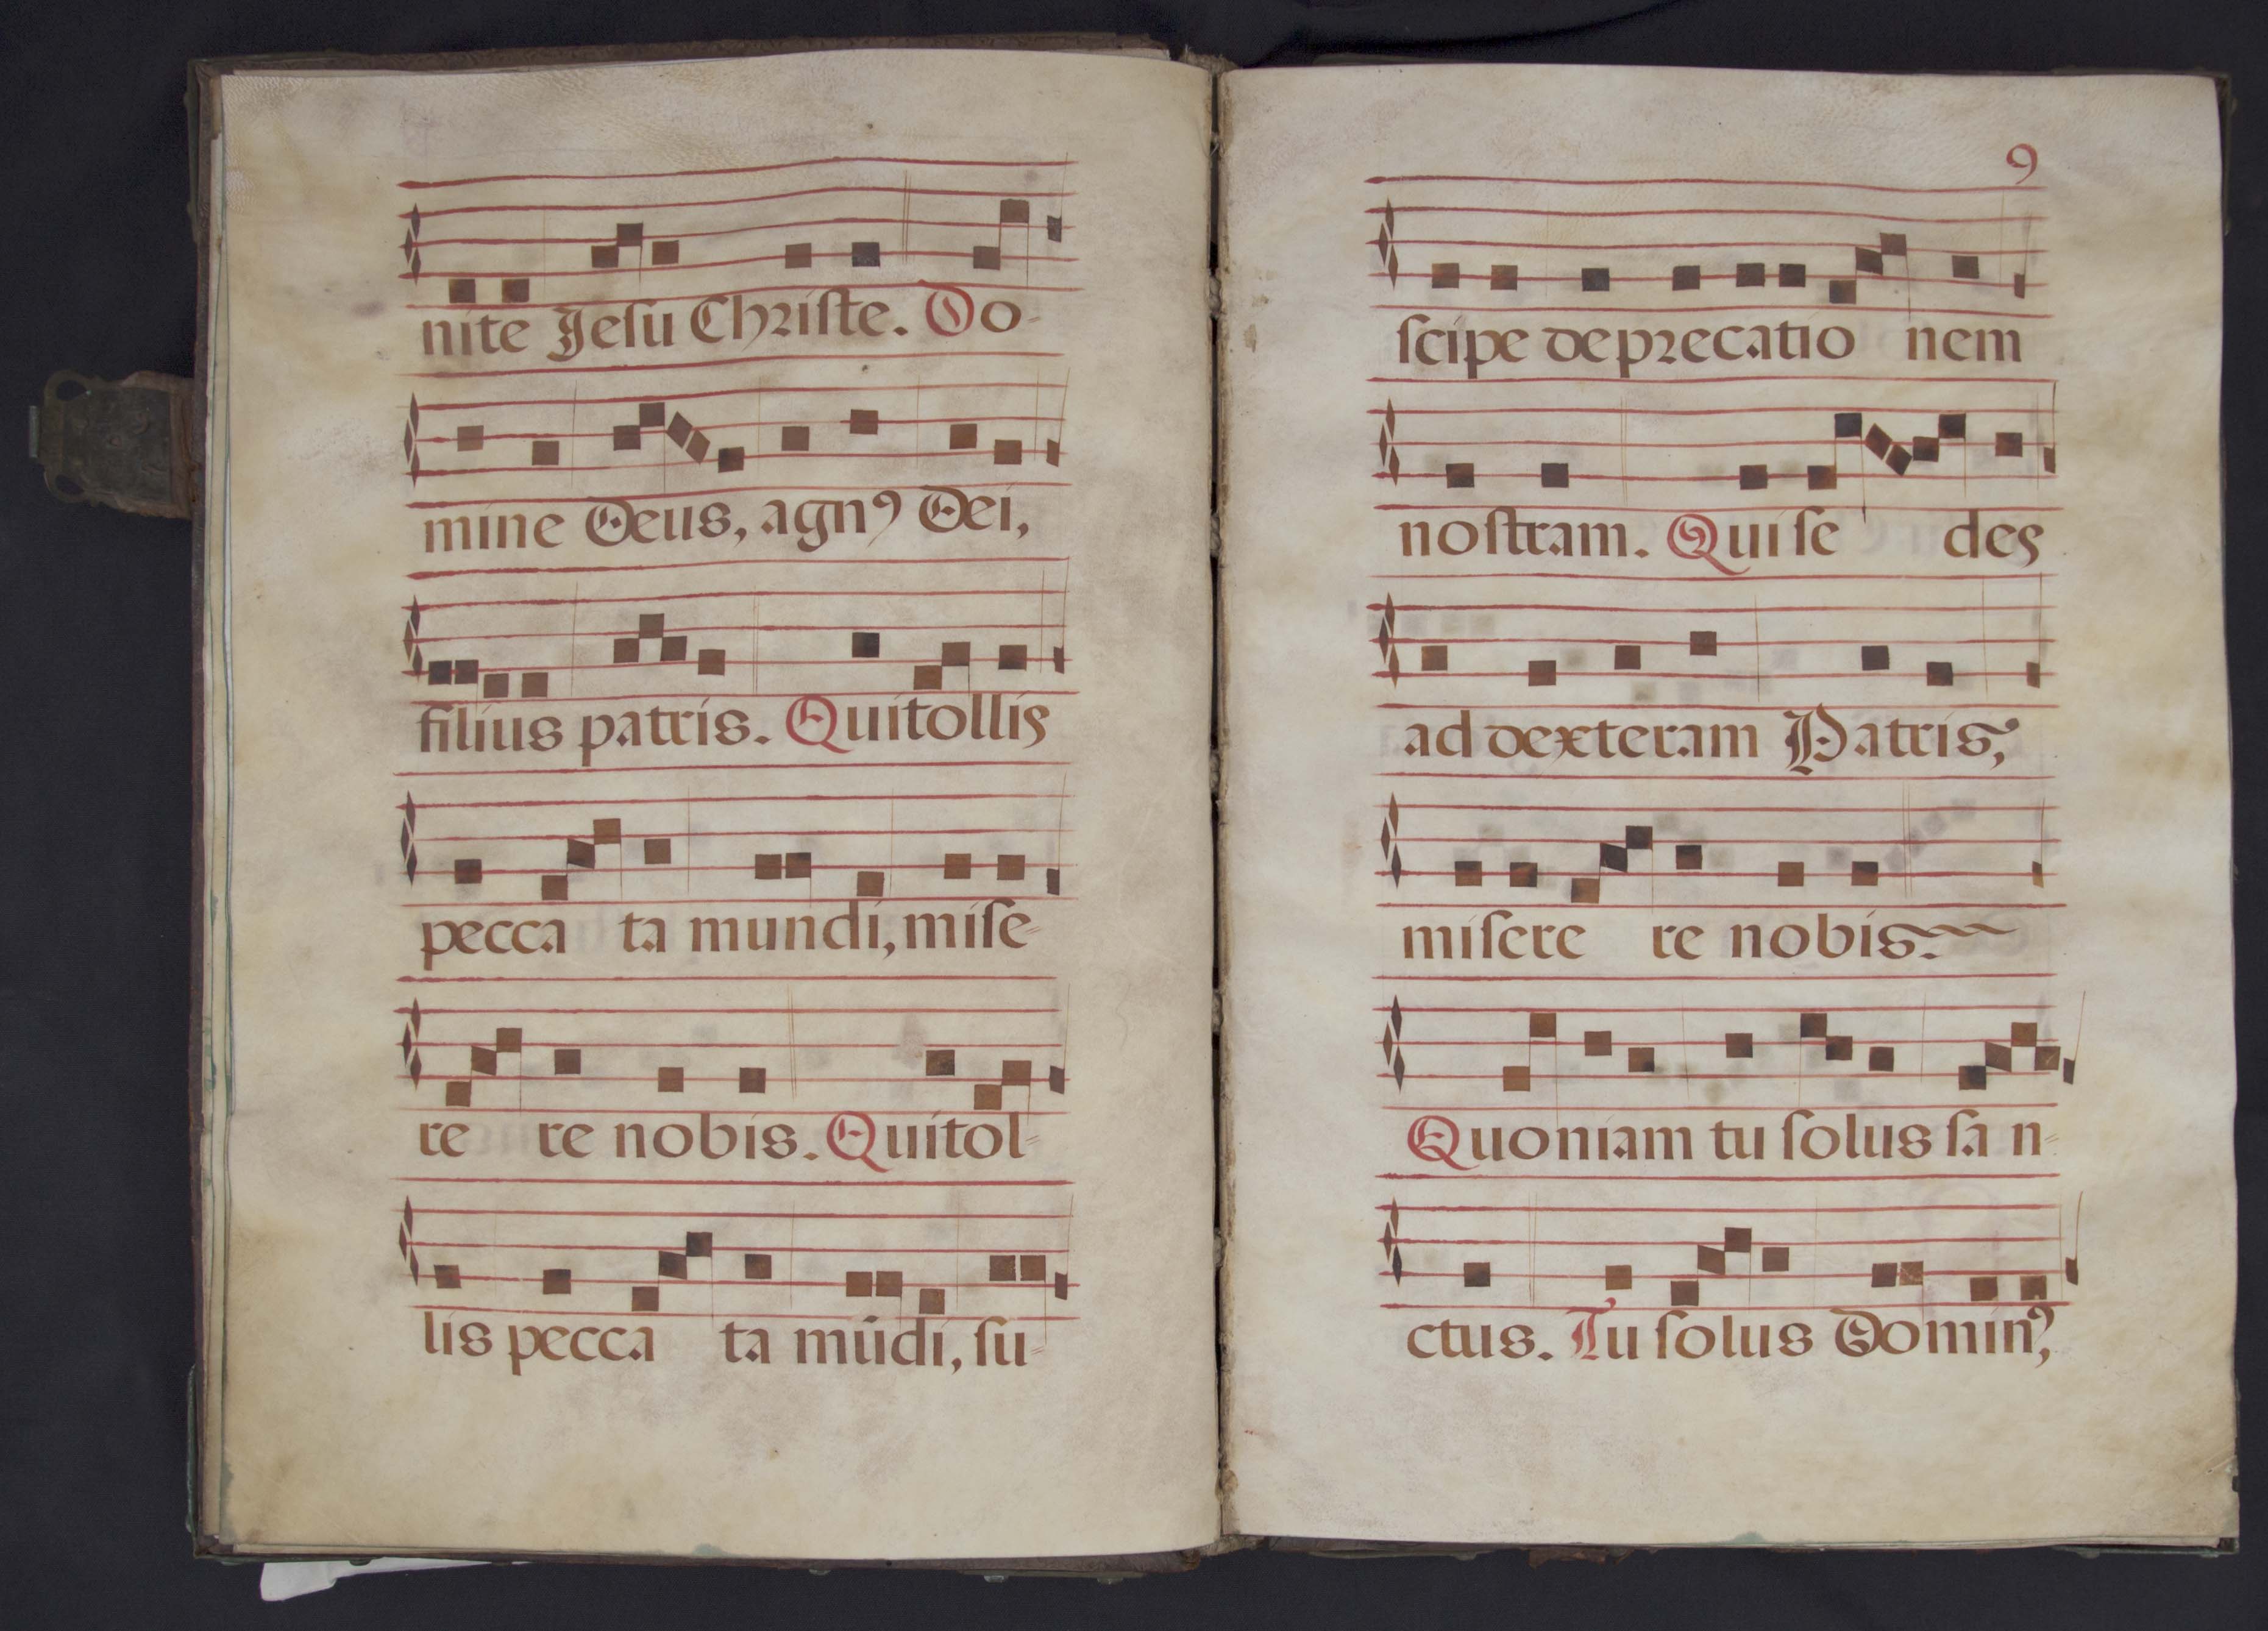 nite Jesu Christe. Do-
mine Deus, agnꝰ Dei,
filius patris. Qui tollis
pecca ta mundi, mise-
re re nobis. Qui tol-
lis pecca ta mūdi, su-
9
scipe deprecatio nem
nostram. Qui se des
ad dexteram Patris,
misere re nobis.
Quoniam tu solus sa n-
ctus. Tu solus Dominꝰ,